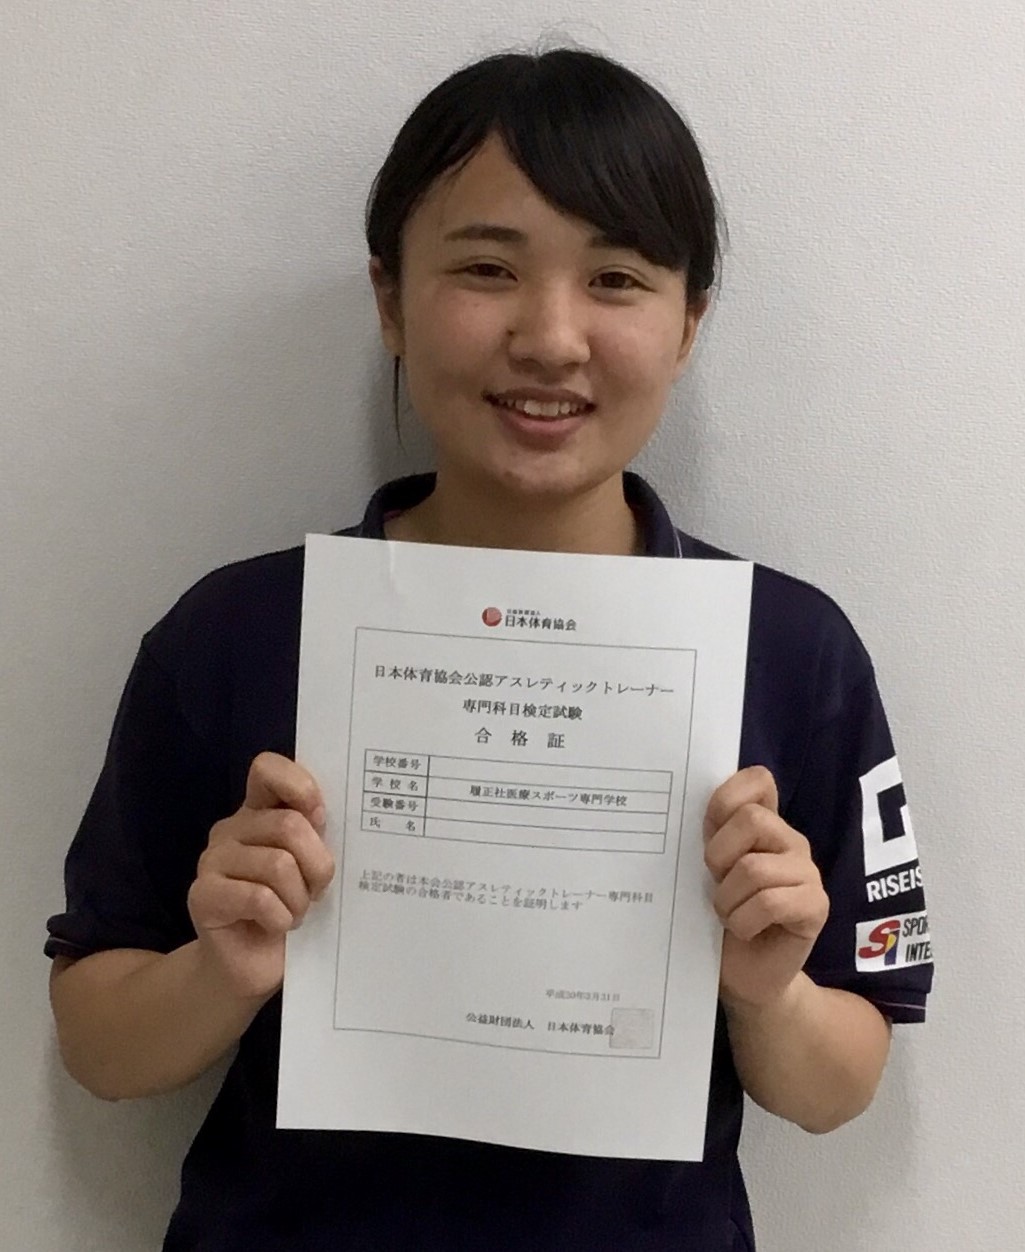 公益財団法人
日本体育協会
日本体育協会公認アスレティックトレーナー
専門科目検定試験
合 格 証
学校番号
学 校 名 履正社医療スポーツ専門学校
受験番号
氏 名
上記の者は本会公認アスレティックトレーナー専門科目
検定試験の合格者であることを証明します
公益財団法人 日本体育協会
RISEIS
Si SPOR
INTE